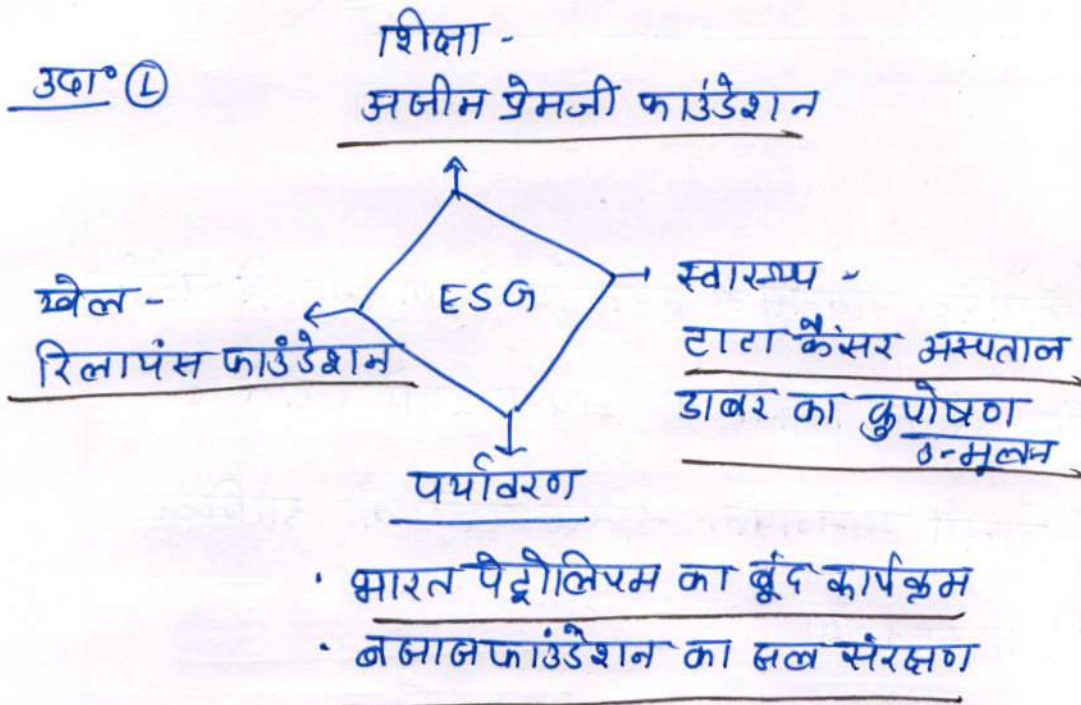 उदा० ①
शिक्षा -
अजीम प्रेमजी फाउंडेशन
ESG
खेल -
रिलायंस फाउंडेशन
स्वास्थ्य -
टाटा कैंसर अस्पताल
डाबर का कुपोषण
उन्मूलन
पर्यावरण
· भारत पेट्रोलियम का बूंद कार्यक्रम
· बजाज फाउंडेशन का जल संरक्षण